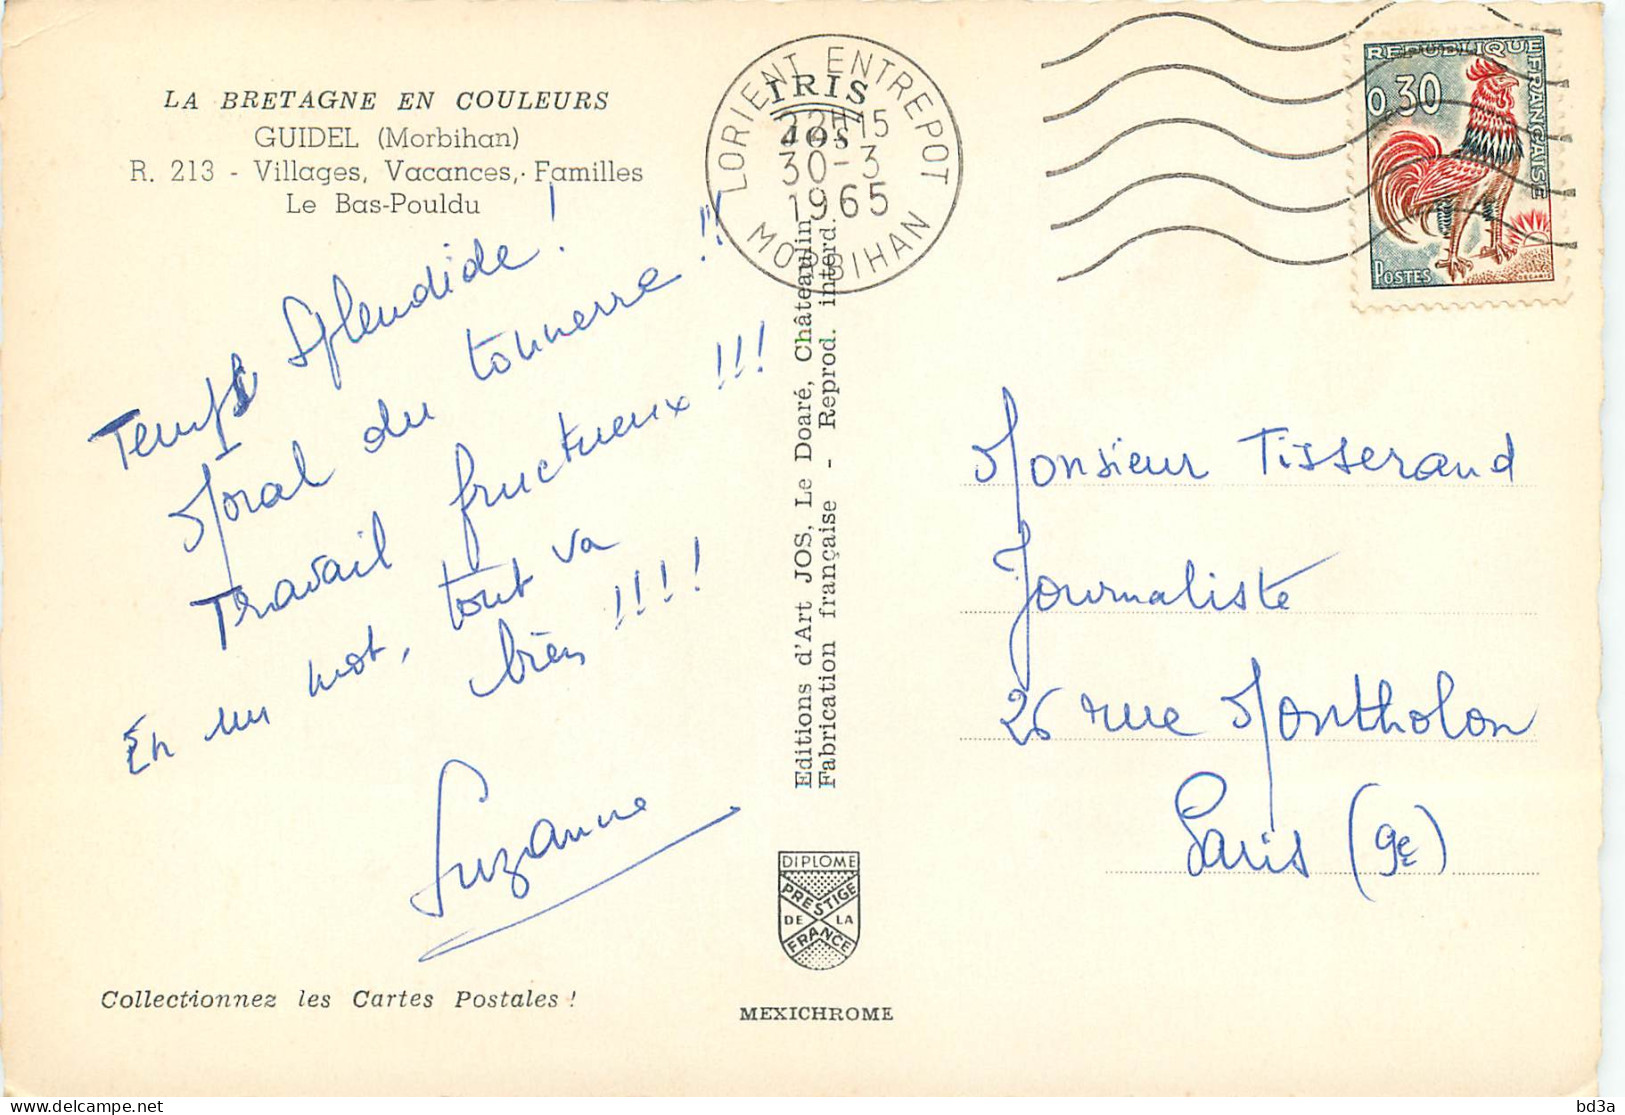 LA BRETAGNE EN COULEURS
GUIDEL (Morbihan)
R. 213 - Villages, Vacances, Familles
Le Bas-Pouldu
Temps Splendide !
Moral du tonnerre !!
Travail fructueux !!!
En un mot, tout va
bien !!!!
Suzanne
Collectionnez les Cartes Postales !
LORIENT ENTREPOT
22H15
30-3
1965
MORBIHAN
IRIS
JOS
Editions d'Art JOS, Le Doaré, Châteaulin
Fabrication française - Reprod. interd.
DIPLOME
PRESTIGE
DE LA
FRANCE
MEXICHROME
REPUBLIQUE FRANÇAISE
0,30
POSTES
Monsieur Tisserand
Journaliste
26 rue Montholon
Paris (9e)
bd3a